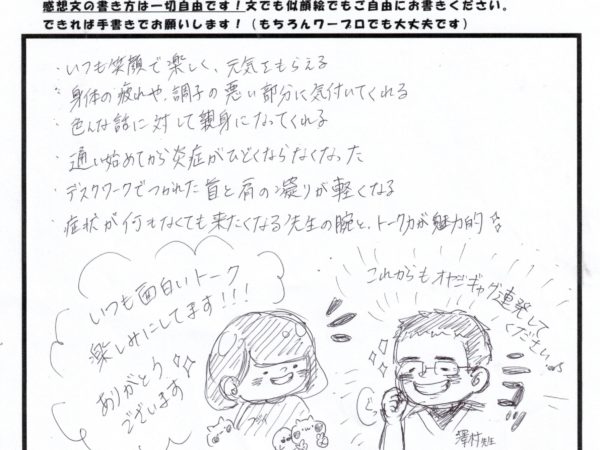 感想文の書き方は一切自由です！文でも似顔絵でもご自由にお書きください。
できれば手書きでお願いします！（もちろんワープロでも大丈夫です）
・いつも笑顔で楽しく、元気をもらえる
・身体の疲れや、調子の悪い部分に気付いてくれる
・色んな話に対して親身になってくれる
・通い始めてから炎症がひどくならなくなった
・デスクワークでつかれた首と肩の凝りが軽くなる
・症状が何もなくても来たくなる先生の腕と、トーク力が魅力的
いつも面白いトーク
楽しみにしてます!!!
ありがとう
ございます
これからもオヤジギャグ連発して
ください
澤村先生